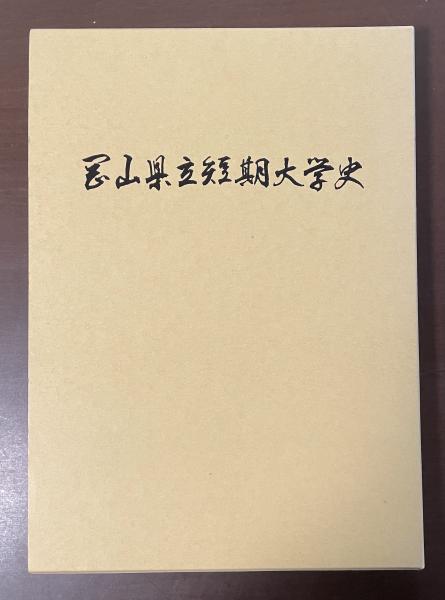 岡山県立短期大学史